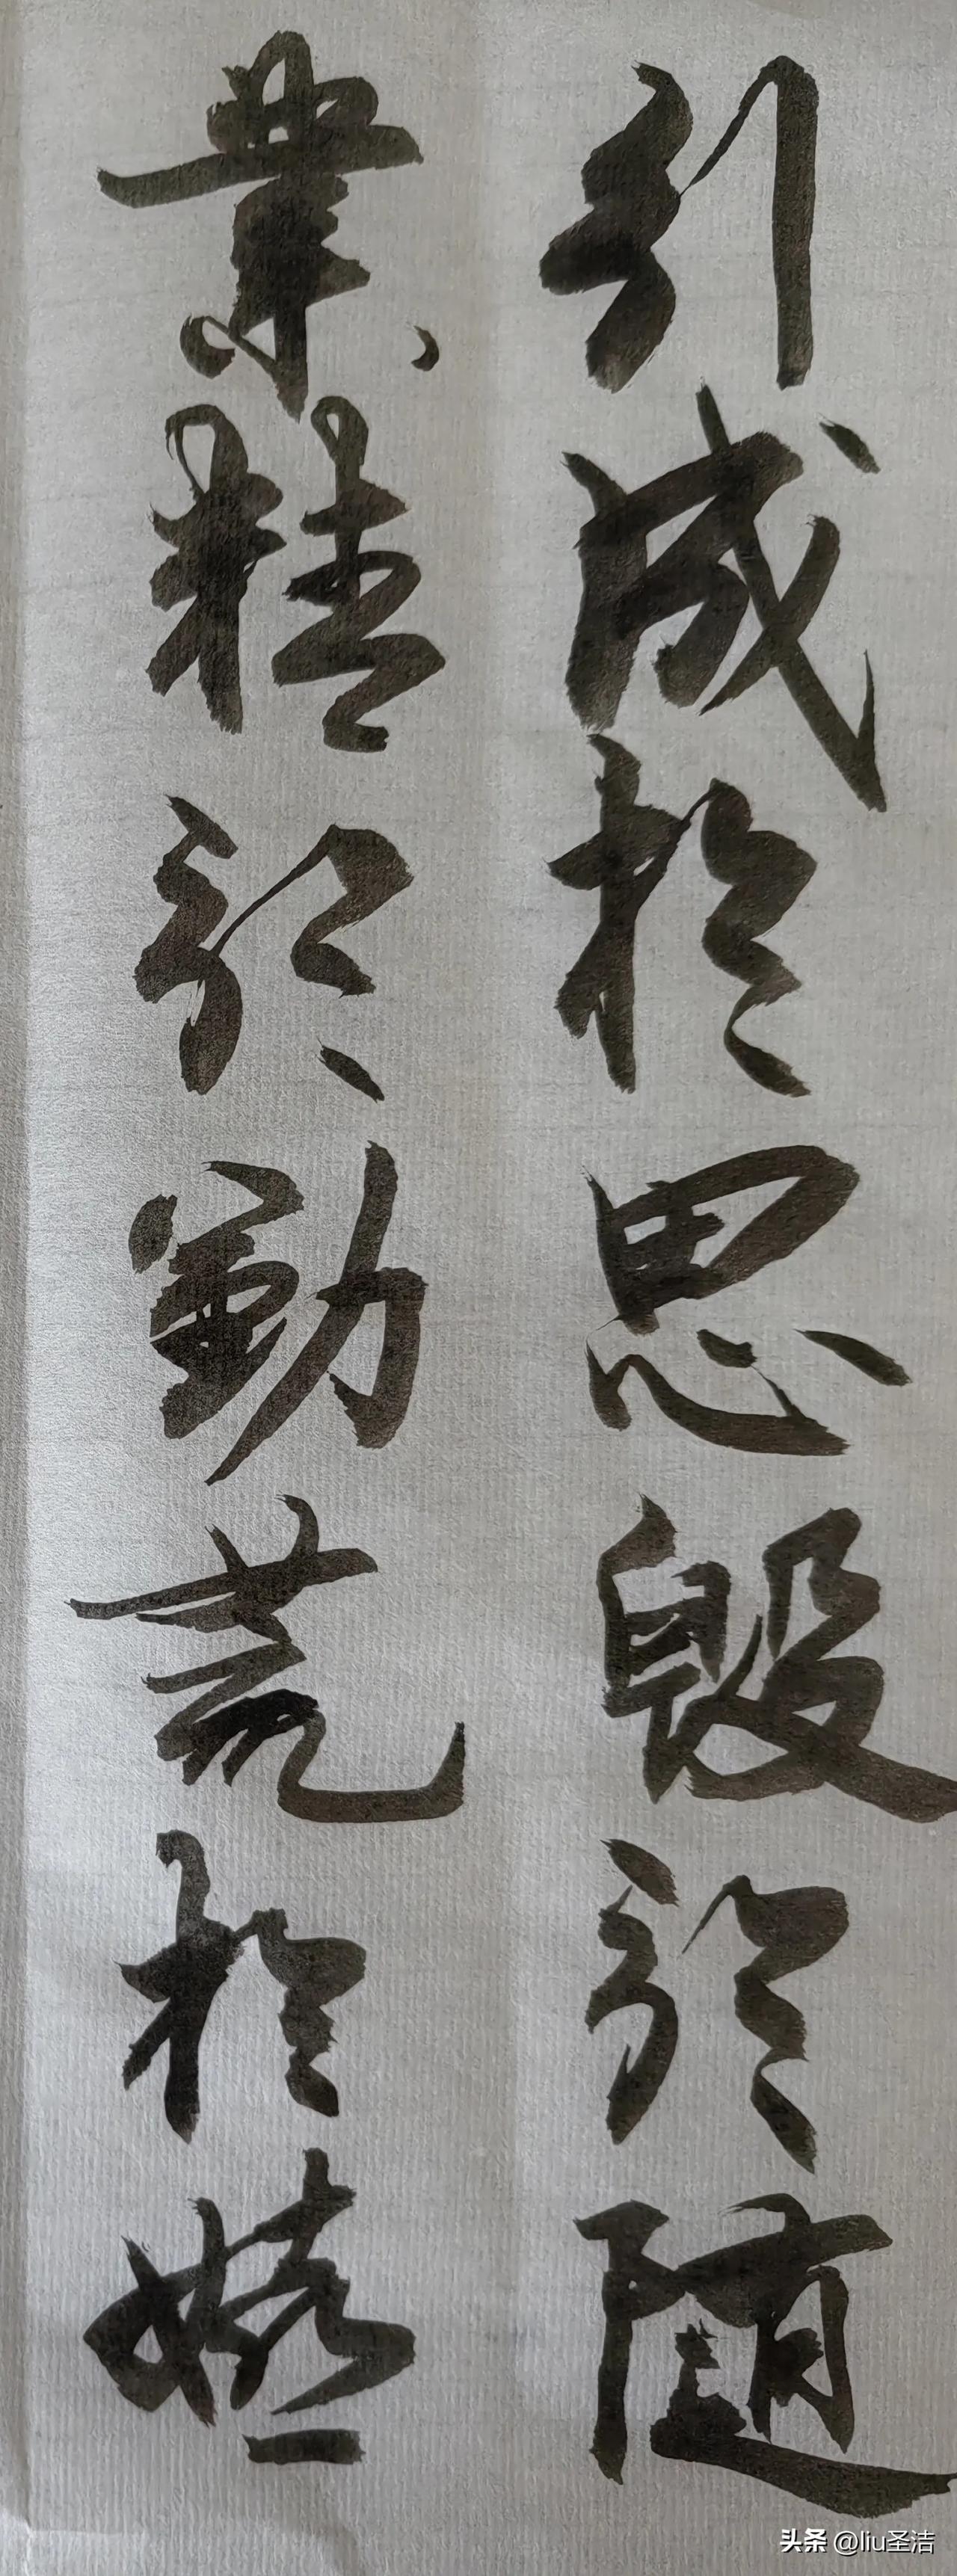 行成於思毀於隨
業精於勤荒於嬉
头条 @liu圣洁